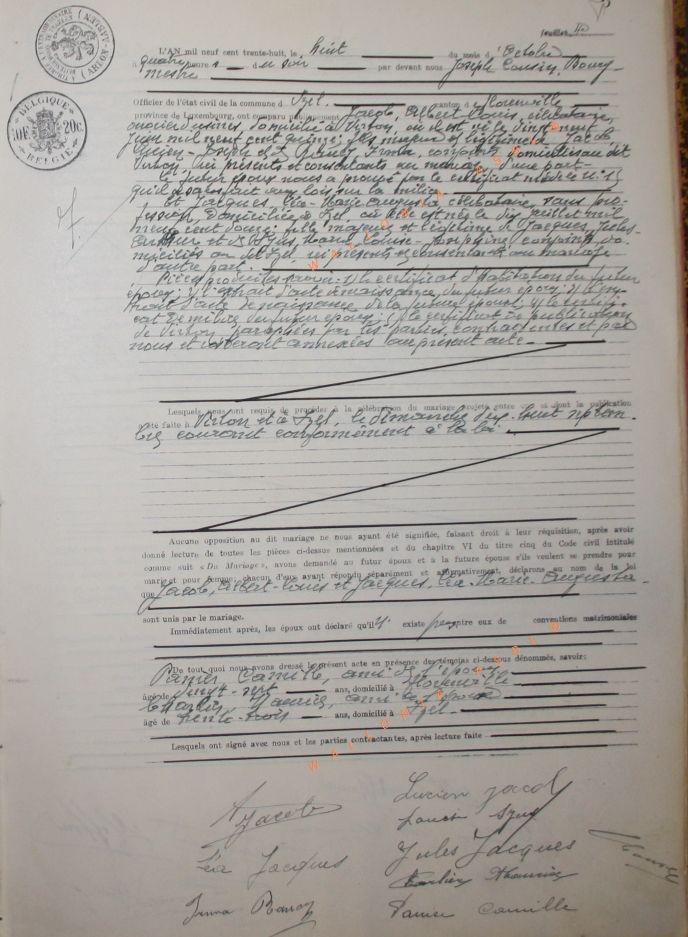 feuillet 40
L'AN mil neuf cent trente-huit, le huit du mois d'Octobre
à quatre heures du soir par devant nous Joseph Cousin, Bourg-
mestre
Officier de l'état civil de la commune d'Izel canton de Florenville
province de Luxembourg, ont comparu publiquement Jacob, Albert Louis, célibataire,
domicilié à Virton, où il est né le vingt-neuf
Juin mil neuf cent quinze, fils majeur et légitime de Jacob,
Lucien Joseph et de Irma, conjoints, domiciliés au dit
Virton, ici présents et consentants au mariage d'une part
le futur époux nous a prouvé par le certificat modèle n° 13
qu'il a satisfait aux lois sur la milice
Et Jacques, Léa-Marie-Augusta célibataire, sans pro-
fession, domiciliée à Izel, où elle est née le dix juillet mil
neuf cent douze; fille majeure et légitime de Jacques, Jules-
et de Marie Louise-Joséphine conjoints, do-
miciliés au dit Izel, ici présents et consentants au mariage
d'autre part.
Pièces produites savoir: 1) le certificat d'habitation du futur
époux; 2) l'extrait d'acte de naissance du futur époux; 3) l'ex-
trait d'acte de naissance de la future épouse; 4) le certifi-
cat de milice du futur époux; 5) le certificat de publication
de Virton, paraphées par les parties contractantes et par
nous et seront annexées au présent acte.
Lesquels nous ont requis de procéder à la célébration du mariage projeté entre eux et dont la publication
a été faite à Virton et à Izel, le dimanche dix-huit septem-
bre courant conformément à la loi.
Aucune opposition au dit mariage ne nous ayant été signifiée, faisant droit à leur réquisition, après avoir
donné lecture de toutes les pièces ci-dessus mentionnées et du chapitre VI du titre cinq du Code civil intitulé
comme suit « Du Mariage », avons demandé au futur époux et à la future épouse s'ils veulent se prendre pour
mari et pour femme; chacun d'eux ayant répondu séparément et affirmativement, déclarons au nom de la loi
que Jacob, Albert-Louis et Jacques, Léa-Marie-Augusta
sont unis par le mariage.
Immédiatement après, les époux ont déclaré qu'il n' existe pas entre eux de conventions matrimoniales
De tout quoi nous avons dressé le présent acte en présence des témoins ci-dessus dénommés, savoir:
Camille, ami de l'époux
âgé de vingt-sept ans, domicilié à Florenville
Maurice, ami de l'épouse
âgé de trente-trois ans, domicilié à Izel
Lesquels ont signé avec nous et les parties contractantes, après lecture faite
A Jacob
Lucien Jacob
Léa Jacques
Jules Jacques
Irma
Camille
BELGIQUE
20c.
BELGIË
ARLON-AARLEN